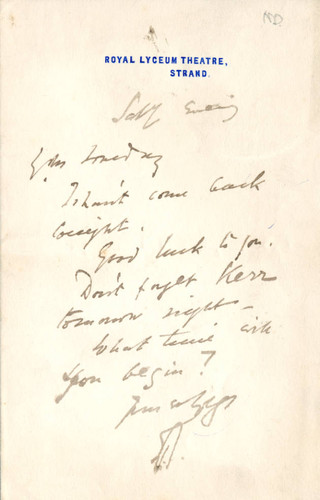 ROYAL LYCEUM THEATRE,
STRAND.
Evening
I shan't come back
tonight.
Good luck to you.
Don't forget Kerr
tomorrow night —
What time will
you begin?